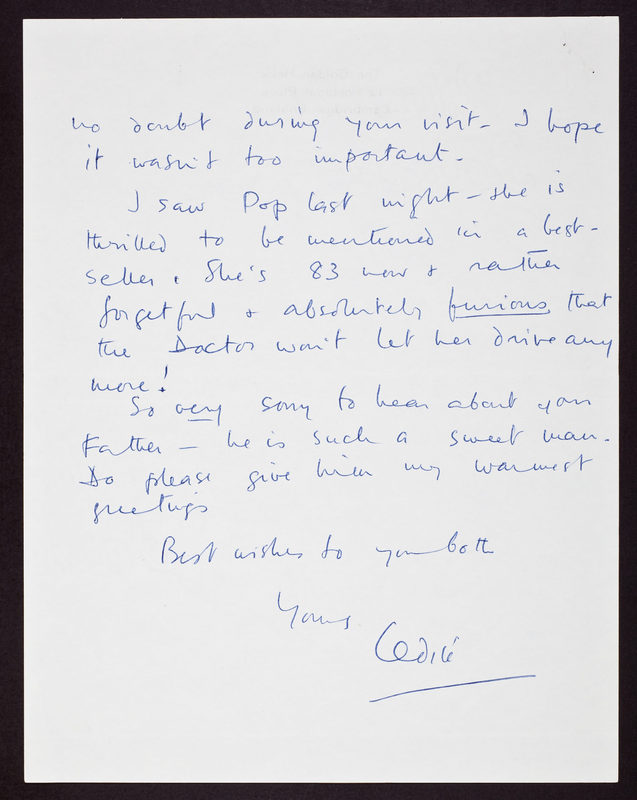 no doubt during your visit - I hope
it wasn't too important -
I saw Pop last night - she is
thrilled to be mentioned in a best-
seller. She's 83 now & rather
forgetful & absolutely furious that
the Doctor won't let her drive any
more!
So very sorry to hear about your
Father - he is such a sweet man.
Do please give him my warmest
greetings
Best wishes to you both
Yours